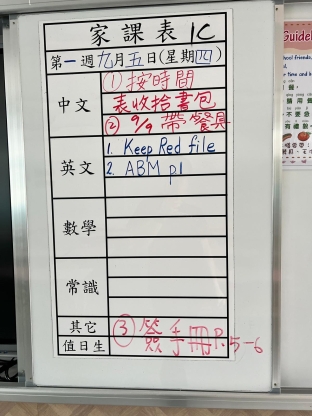 家課表 1C
第一週九月五日(星期四)
中文
① 按時間
表收拾書包
② 9/9 帶餐具
英文
1. Keep Red file
2. ABM p1
數學
常識
其它
值日生
③ 簽手冊P.5-6
Guidel